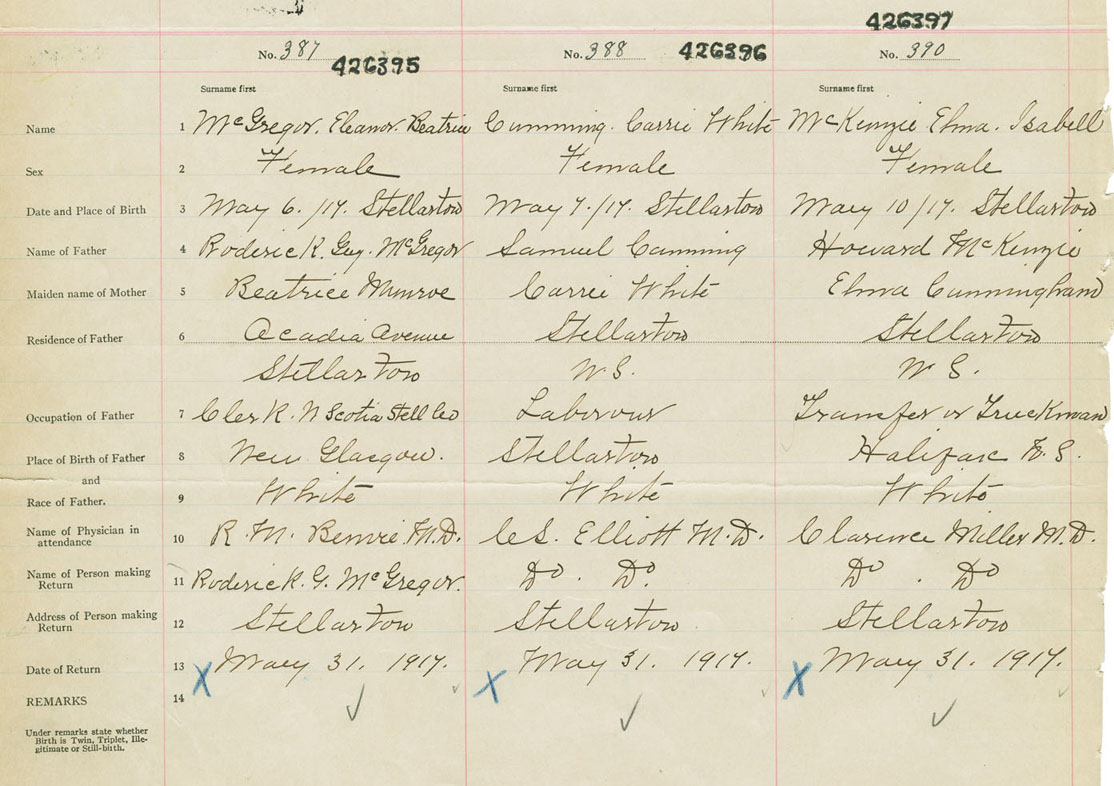 426397
No. 387 426395 No. 388 426396 No. 390
Surname first Surname first Surname first
Name 1 McGregor. Eleanor. Beatrice Cumming. Carrie White McKenzie Elma. Isabell
Sex 2 Female Female Female
Date and Place of Birth 3 May 6./17. Stellarton May 7./17. Stellarton May 10/17. Stellarton
Name of Father 4 Roderick. Guy. McGregor Samuel Cumming Howard McKenzie
Maiden name of Mother 5 Beatrice Munroe Carrie White Elma Cunningham
Residence of Father 6 Acadia Avenue Stellarton Stellarton
Stellarton N S. N S.
Occupation of Father 7 Clerk. N Scotia Steel Co Labourer Transfer or Truckman
Place of Birth of Father 8 New Glasgow. Stellarton Halifax N. S.
and
Race of Father. 9 White White White
Name of Physician in
attendance 10 R. M. Benvie. M.D. C S. Elliott M.D. Clarence Miller M.D.
Name of Person making
Return 11 Roderick. G. McGregor. Do. Do. Do. Do
Address of Person making
Return 12 Stellarton Stellarton Stellarton
Date of Return 13 May 31. 1917. May 31. 1917. May 31. 1917.
REMARKS 14 X X X
Under remarks state whether
Birth is Twin, Triplet, Ille-
gitimate or Still-birth.